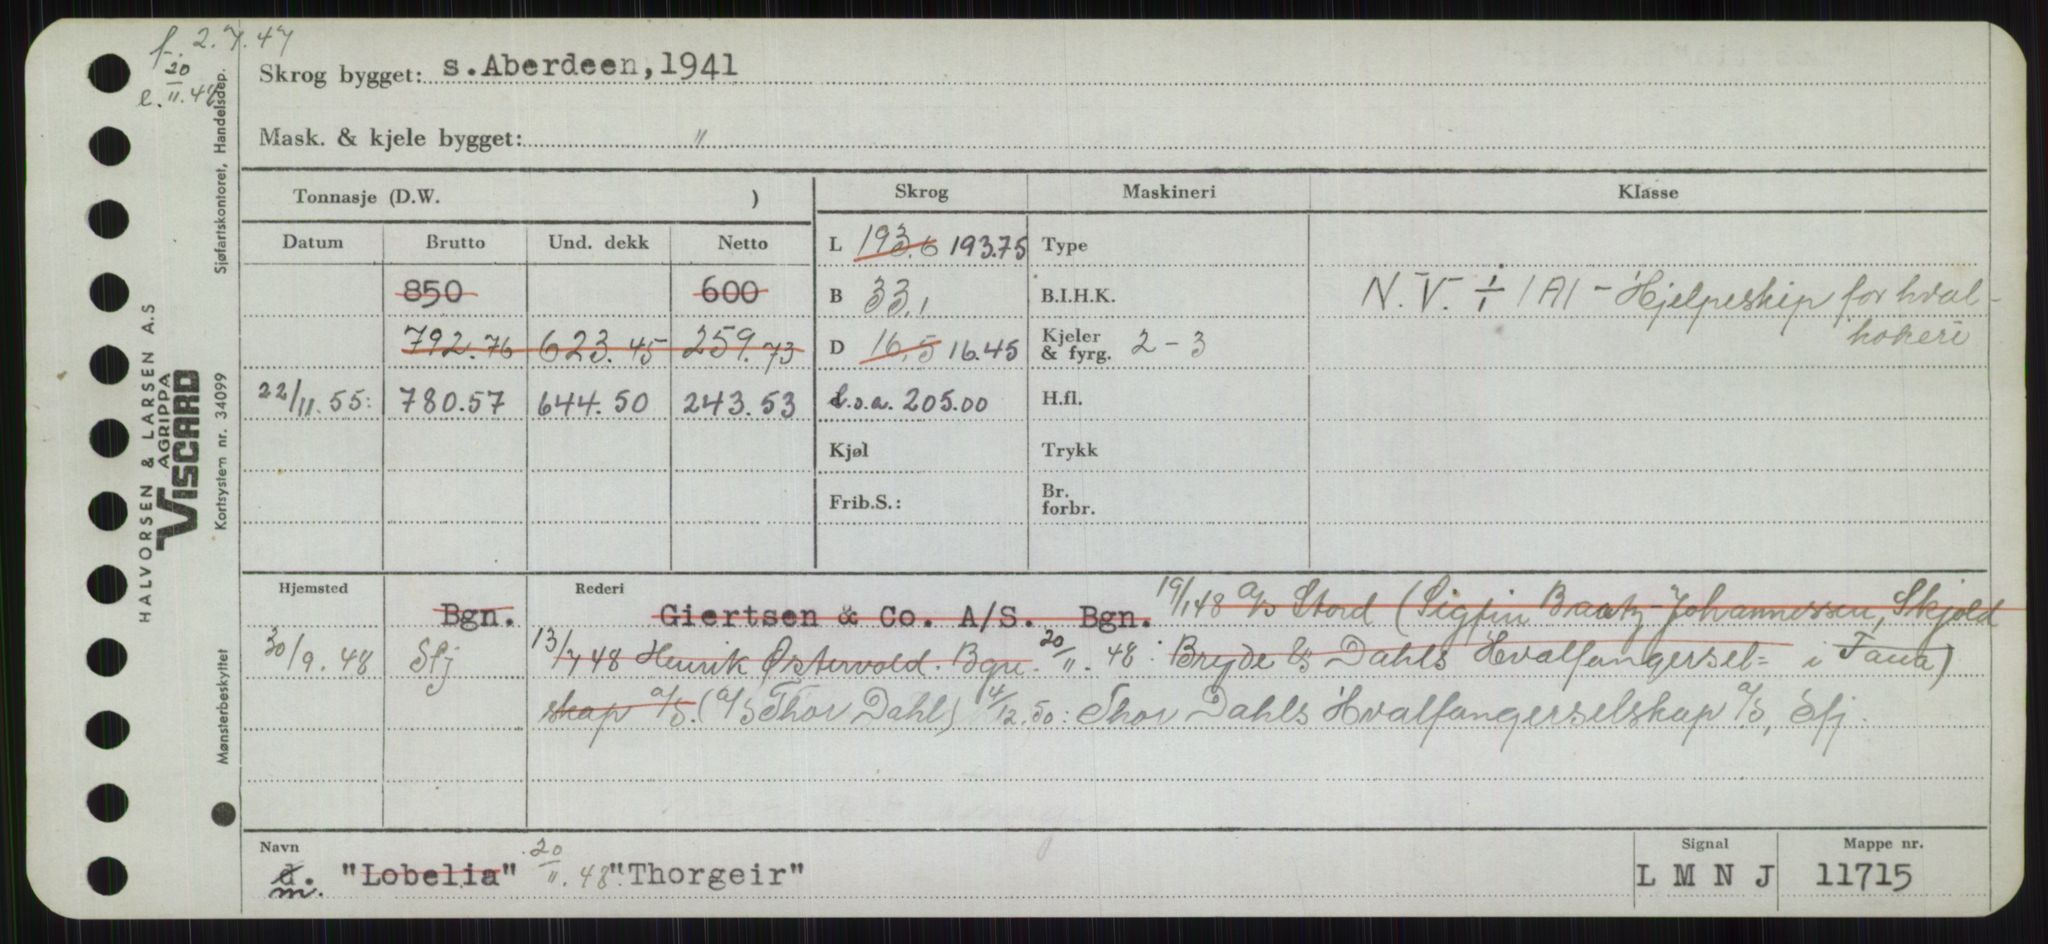 f. 2.7.47
20/11.48
e.
Skrog bygget: s.Aberdeen,1941
Mask. & kjele bygget: "
Tonnasje (D.W. )
Skrog
Maskineri
Klasse
Datum Brutto Und. dekk Netto
L 193.6 193.75
Type
850 600
B 33,1
B.I.H.K.
N.V. ÷ 1A1 - Hjelpeskip for hval-
kokeri
792.76 623.45 259.73
D 16,5 16.45
Kjeler & fyrg. 2-3
22/11.55: 780.57 644.50 243.53
l.o.a. 205.00
H.fl.
Kjøl
Trykk
Frib.S.:
Br. forbr.
Hjemsted
Rederi
Bgn. Giertsen & Co. A/S. Bgn. 19/1 48 A/S Stord (Sigfin Baatz-Johannessen, Skjold
i Fana)
30/9.48 Sfj 13/7 48 Henrik Østervold. Bgn. 20/11.48: Bryde & Dahls Hvalfangersel=
skap A/S. (A/S Thor Dahl) 4/12.50: Thor Dahls Hvalfangerselskap A/S, Sfj.
Navn
d. m. "Lobelia" 20/11.48 "Thorgeir"
Signal
L M N J
Mappe nr.
11715
Sjøfartskontoret, Handelsdep.
HALVORSEN & LARSEN A.S
AGRIPPA
VISCARD
Kortsystem nr. 34099
Mønsterbeskyttet